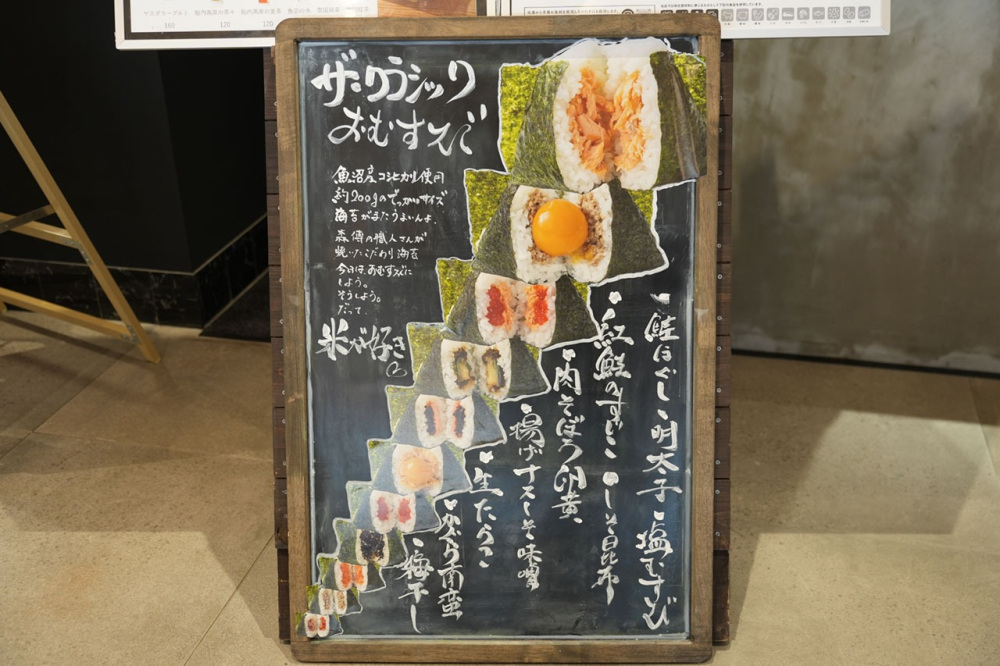 ザ・クラシック
おむすび
魚沼産コシヒカリ使用
約200gのでっかいサイズ
海苔がまたうまいんよ。
森傳の職人さんが
焼いたこだわり海苔
今日は、おむすびに
しよう。
そうしよう。
だって、
米が好き
鮭ほぐし 明太子 塩むすび
紅鮭のすじこ しそ昆布
肉そぼろ卵黄
揚げナスしそ味噌
生たらこ
かぐら南蛮
梅干し
160
120
120